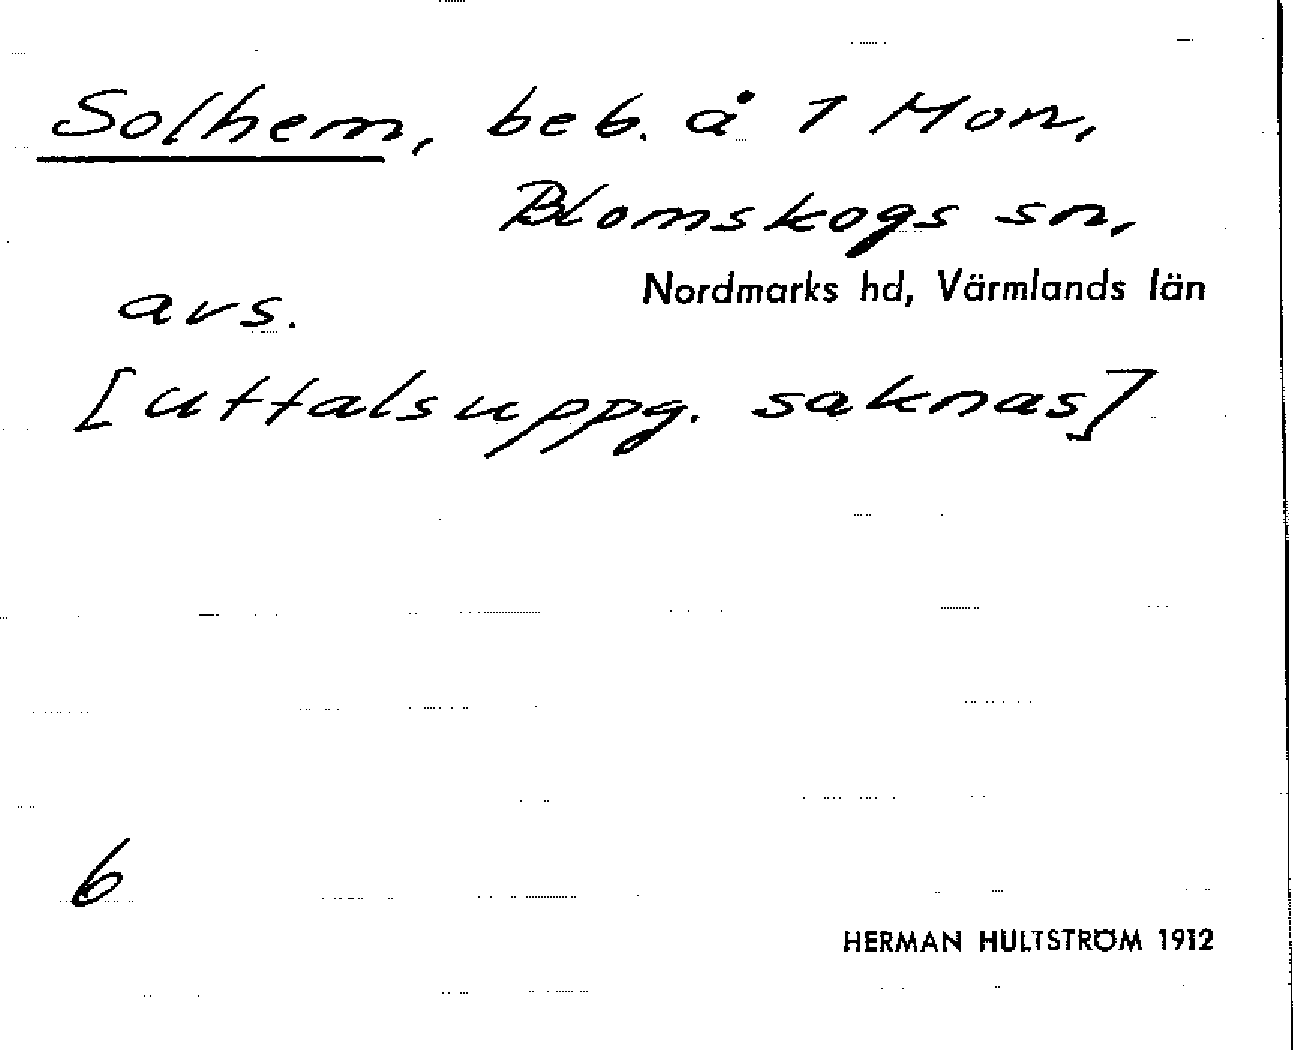 Solhem, beb. å 1 Mon,
Blomskogs sn,
Nordmarks hd, Värmlands län
avs.
[uttalsuppg. saknas]
6
HERMAN HULTSTRÖM 1912